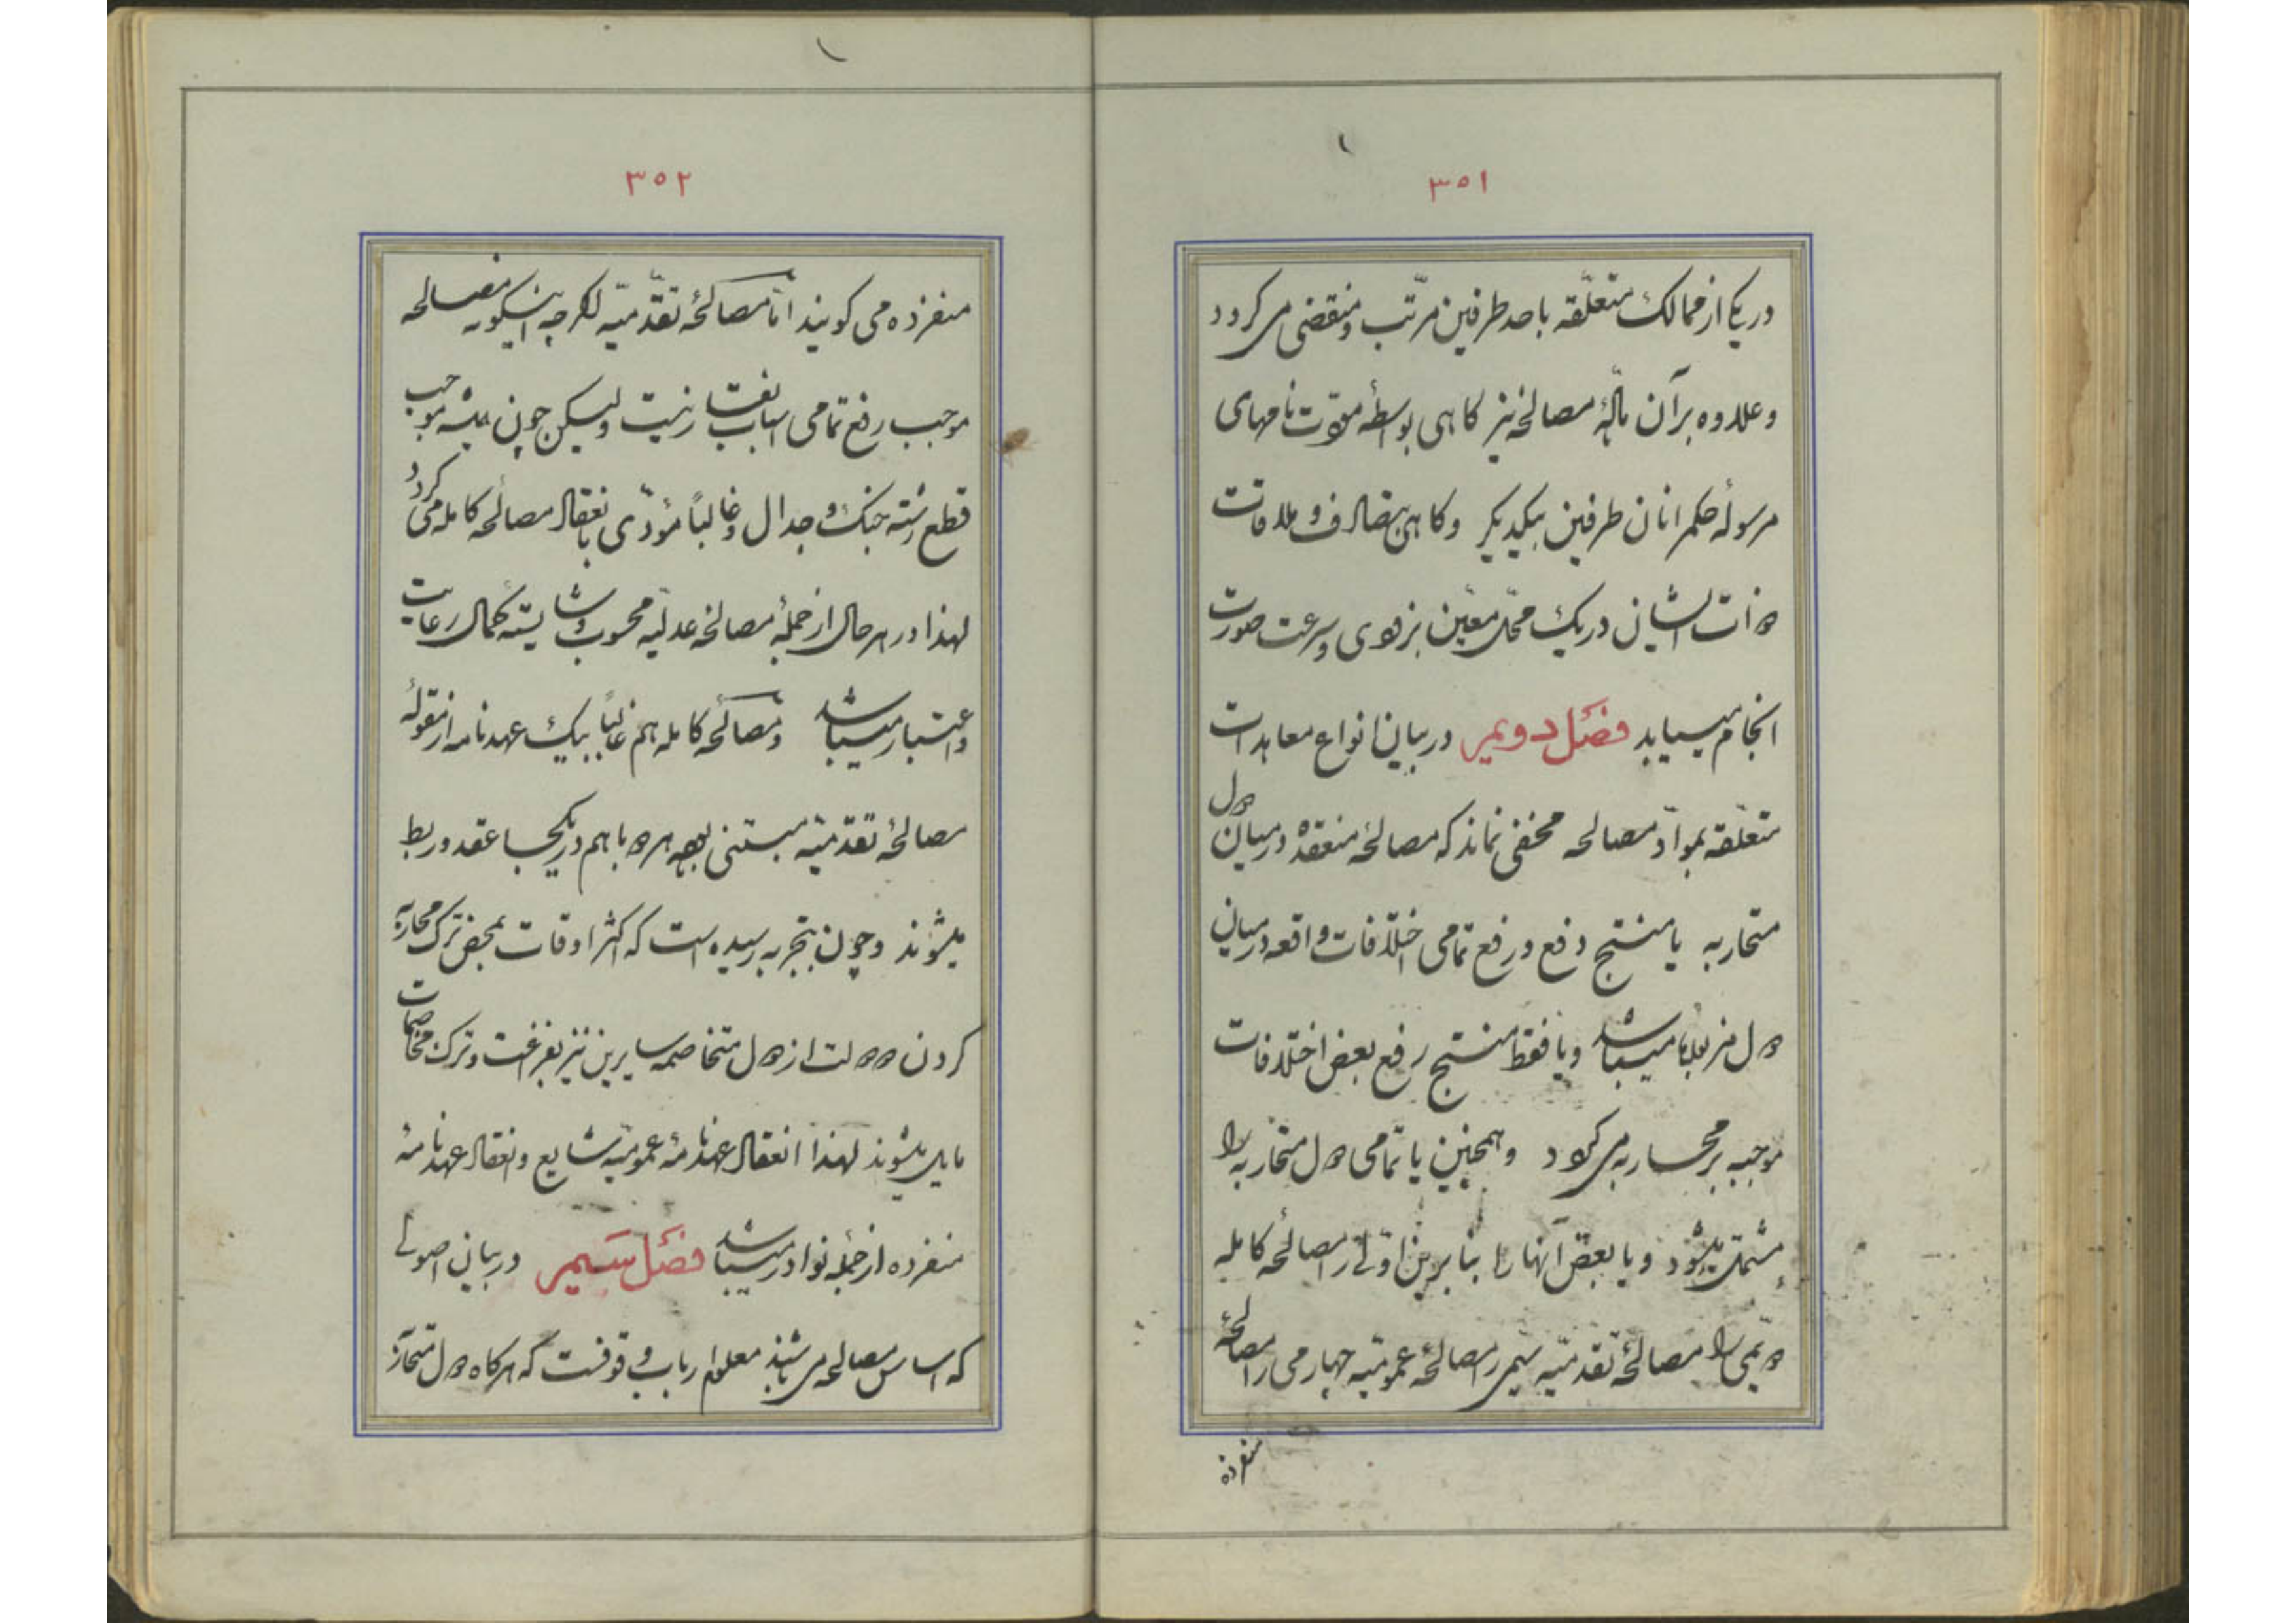 ۳۵۱
در یکی از ممالک متعلّقه باحد طرفین مرتّب و منقضی می کردد
و علاوه بر آن مادّهٔ مصالحه نیز کاهی بواسطهٔ مودّت نامهای
مرسولهٔ حکمرانان طرفین بیکدیکر و کاهی بتصادف و ملاقات
ذات ایشان در یک محلّ معیّن بزودی و سرعت صورت
انجام میابد فصل دویم در بیان انواع معاهدات
متعلّقه بموادّ مصالحه مخفی نماند که مصالحهٔ منعقده در میان دول
متحاربه یا منتج دفع و رفع تمامی اختلافات واقعه در میان
دول مزبوره میباشد و یا فقط منتج رفع بعض اختلافات
موجبه بر محاربه می کردد و همچنین یا تمامی دول متحاربه را
مشتمل میشود و یا بعض آنها را بنا برین اوّلی را مصالحهٔ کامله
دویمی را مصالحهٔ تقدمیّه سیمی را مصالحهٔ عمومیّه چهارمی را مصالحهٔ
منفرده
۳۵۲
منفرده می کویند امّا مصالحهٔ تقدّمیّه اکرچه اینکونه مصالحه
موجب رفع تمامی اسباب نیست ولیکن چون همیشه موجب
قطع رشته جنک و جدال و غالباً مؤدّی بانعقاد مصالحه کامله می کردد
لهذا در هر حال از جملهٔ مصالحه عدلیّه محسوب و شایسته کمال رعایت
و اعتبار میباشد و مصالحهٔ کامله هم غالباً بیک عهدنامه از مقولهٔ
مصالحهٔ تقدمیّه مبتنی بوده هر دو با هم در یکجا عقد و ربط
میشوند و چون بتجربه رسیده است که اکثر اوقات بمحض ترک محاربه
کردن دو دولت از دول متخاصمه سایرین نیز بفراغت و ترک مخاصمات
مایل میشوند لهذا انعقاد عهدنامهٔ عمومیّه شایع و انعقاد عهدنامهٔ
منفرده از جملهٔ نوادر میباشد فصل سیم در بیان اصولی
که اساس مصالحه می باشند معلوم ارباب وقوفست که هرکاه دول متحاربه